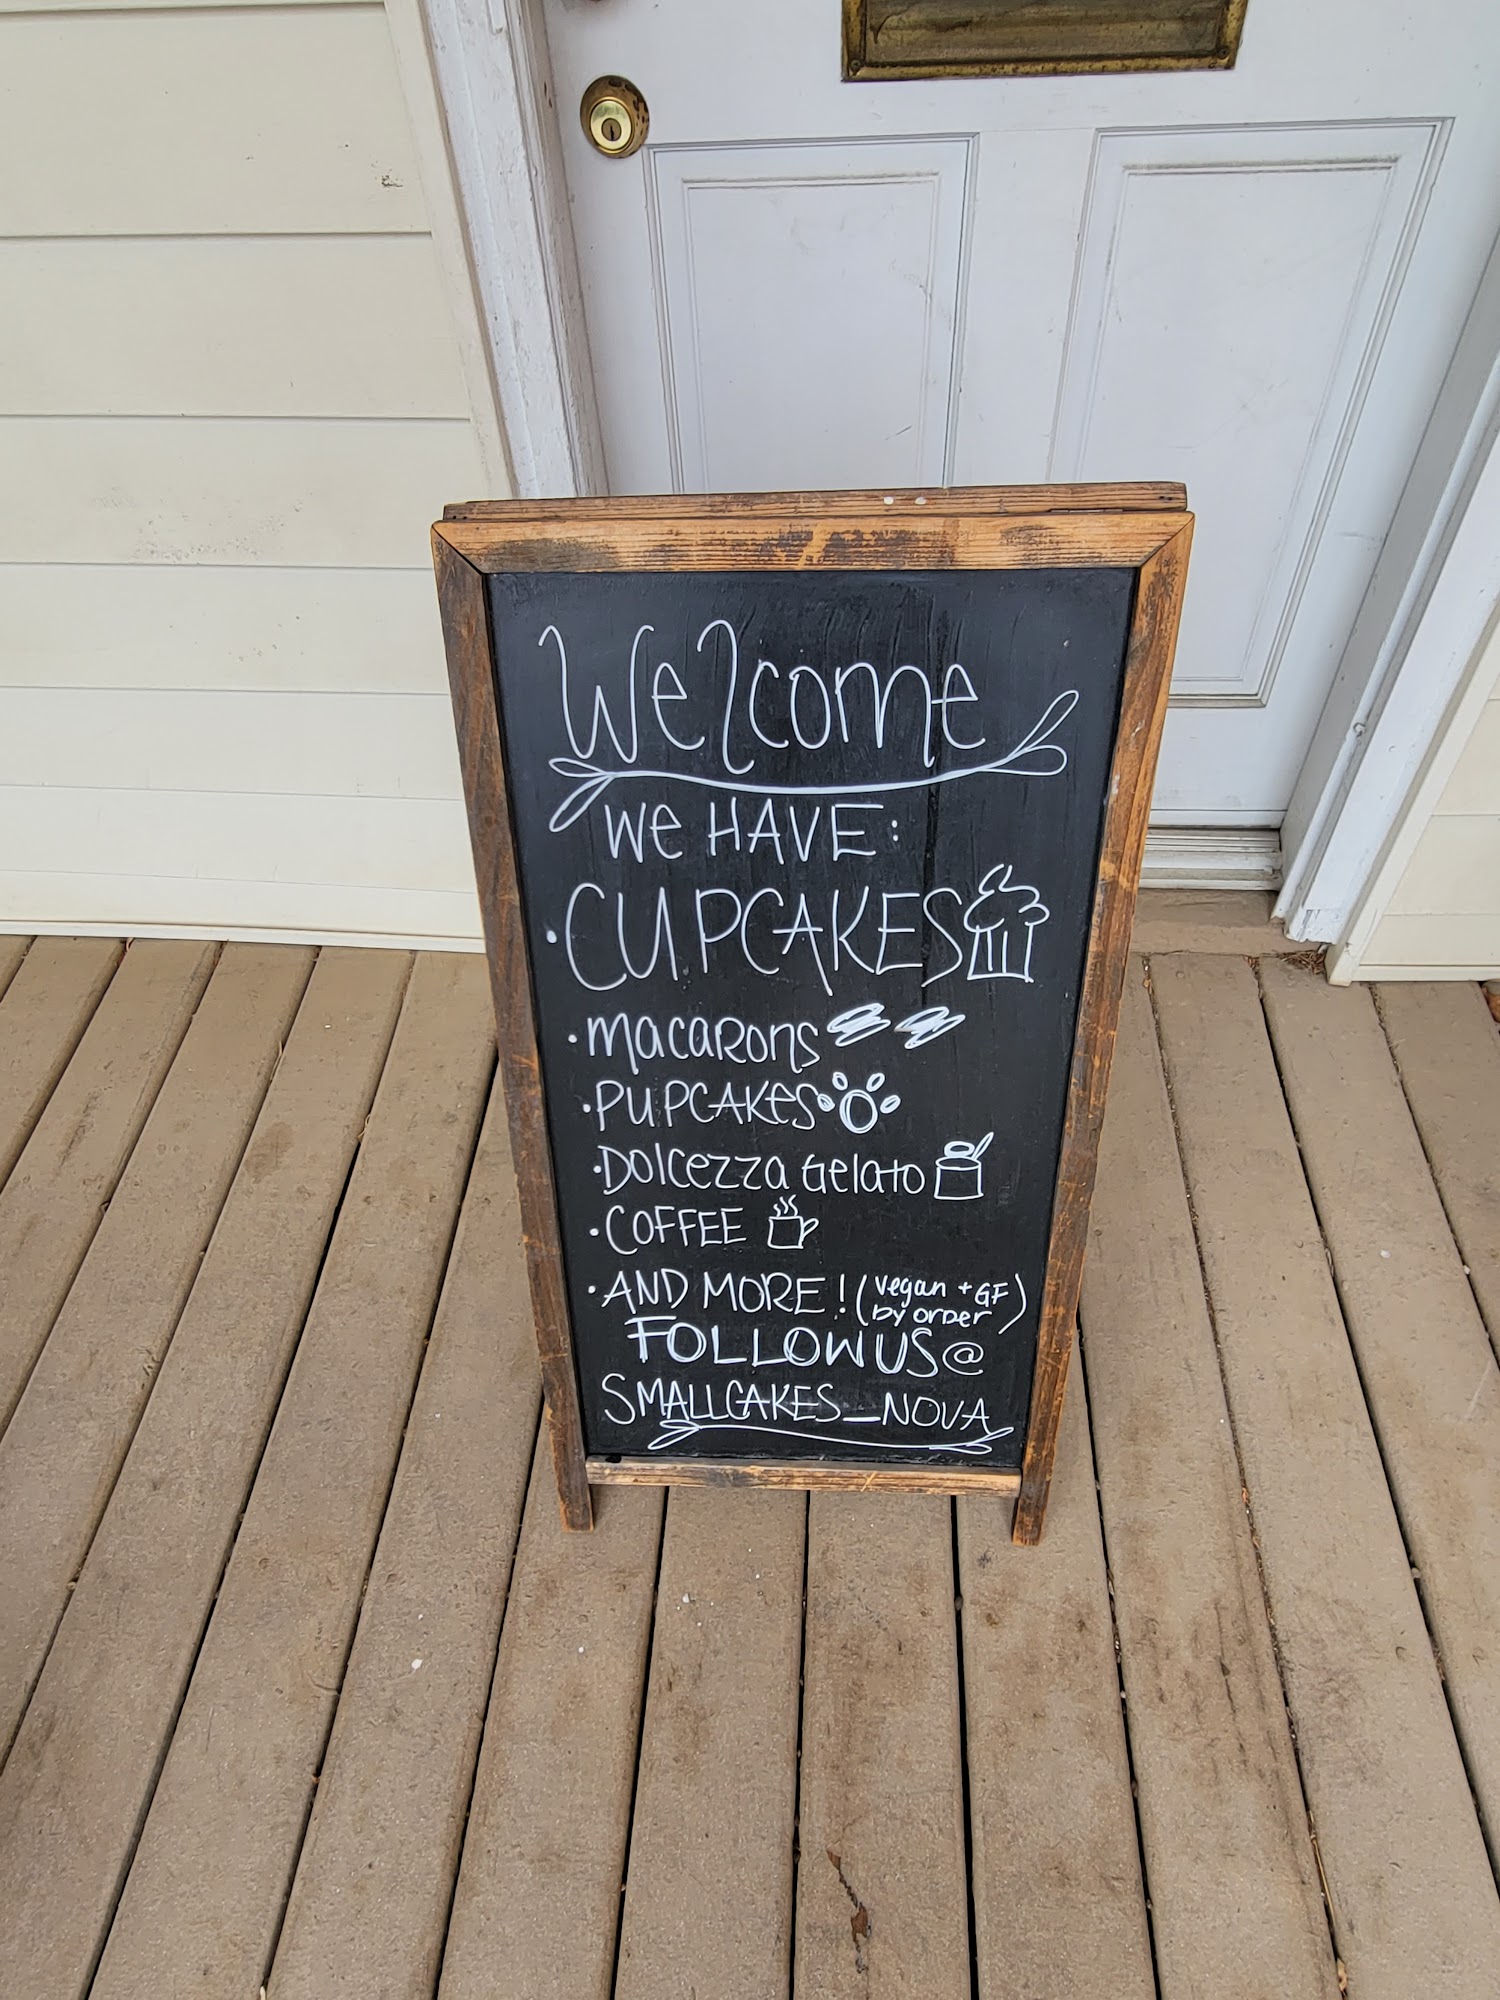 Welcome
We HAVE:
• CUPCAKES
• macarons
• PUPCAKES
• Dolcezza Gelato
• COFFEE
• AND MORE! (vegan + GF
by order)
FOLLOW US @
SMALLCAKES_NOVA